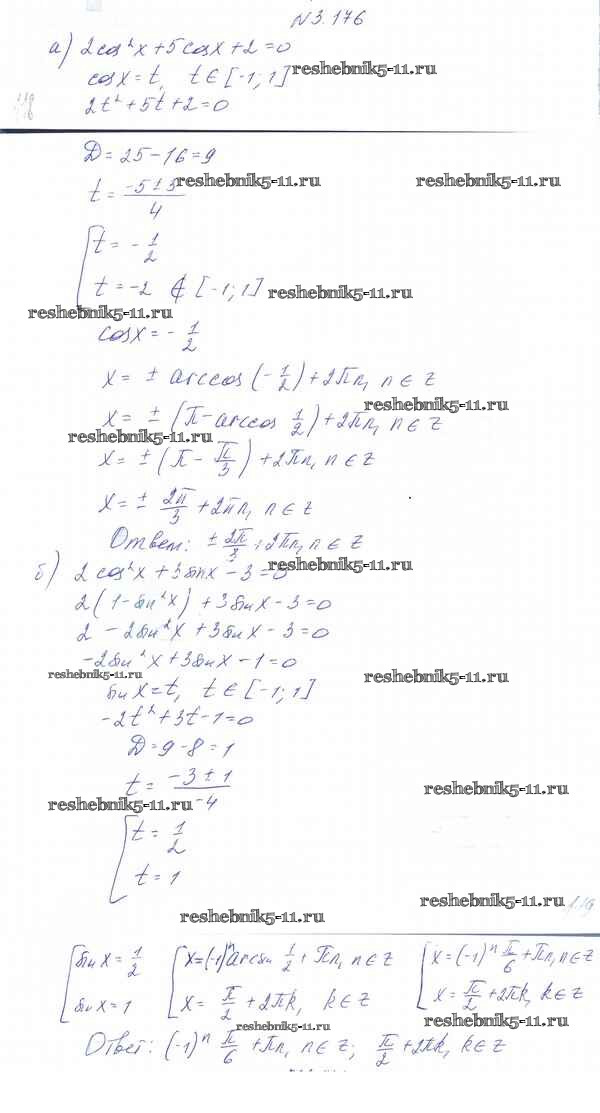 N3.176
а) 2cos²x + 5cosx + 2 = 0
cosx = t, t ∈ [-1; 1] reshebnik5-11.ru
2t² + 5t + 2 = 0
Д = 25 - 16 = 9
t = (-5 ± 3)/4 reshebnik5-11.ru reshebnik5-11.ru
[ t = -1/2
t = -2 ∉ [-1; 1] reshebnik5-11.ru
reshebnik5-11.ru
cosx = -1/2
x = ± arccos (-1/2) + 2πn, n ∈ z
reshebnik5-11.ru
x = ± (π - arccos 1/2) + 2πn, n ∈ z
reshebnik5-11.ru
x = ± (π - π/3) + 2πn, n ∈ z
x = ± 2π/3 + 2πn, n ∈ z
Ответ: ± 2π/3 + 2πn, n ∈ z
б) 2cos²x + 3sinx - 3 = 0 reshebnik5-11.ru
2(1 - sin²x) + 3sinx - 3 = 0
2 - 2sin²x + 3sinx - 3 = 0
-2sin²x + 3sinx - 1 = 0
reshebnik5-11.ru reshebnik5-11.ru
sinx = t, t ∈ [-1; 1]
-2t² + 3t - 1 = 0
Д = 9 - 8 = 1
t = (-3 ± 1)/-4 reshebnik5-11.ru
reshebnik5-11.ru
[ t = 1/2
t = 1
reshebnik5-11.ru
reshebnik5-11.ru
[ sinx = 1/2 [ x = (-1)ⁿ arcsin 1/2 + πn, n ∈ z [ x = (-1)ⁿ π/6 + πn, n ∈ z
sinx = 1 x = π/2 + 2πk, k ∈ z x = π/2 + 2πk, k ∈ z
reshebnik5-11.ru reshebnik5-11.ru
Ответ: (-1)ⁿ π/6 + πn, n ∈ z; π/2 + 2πk, k ∈ z